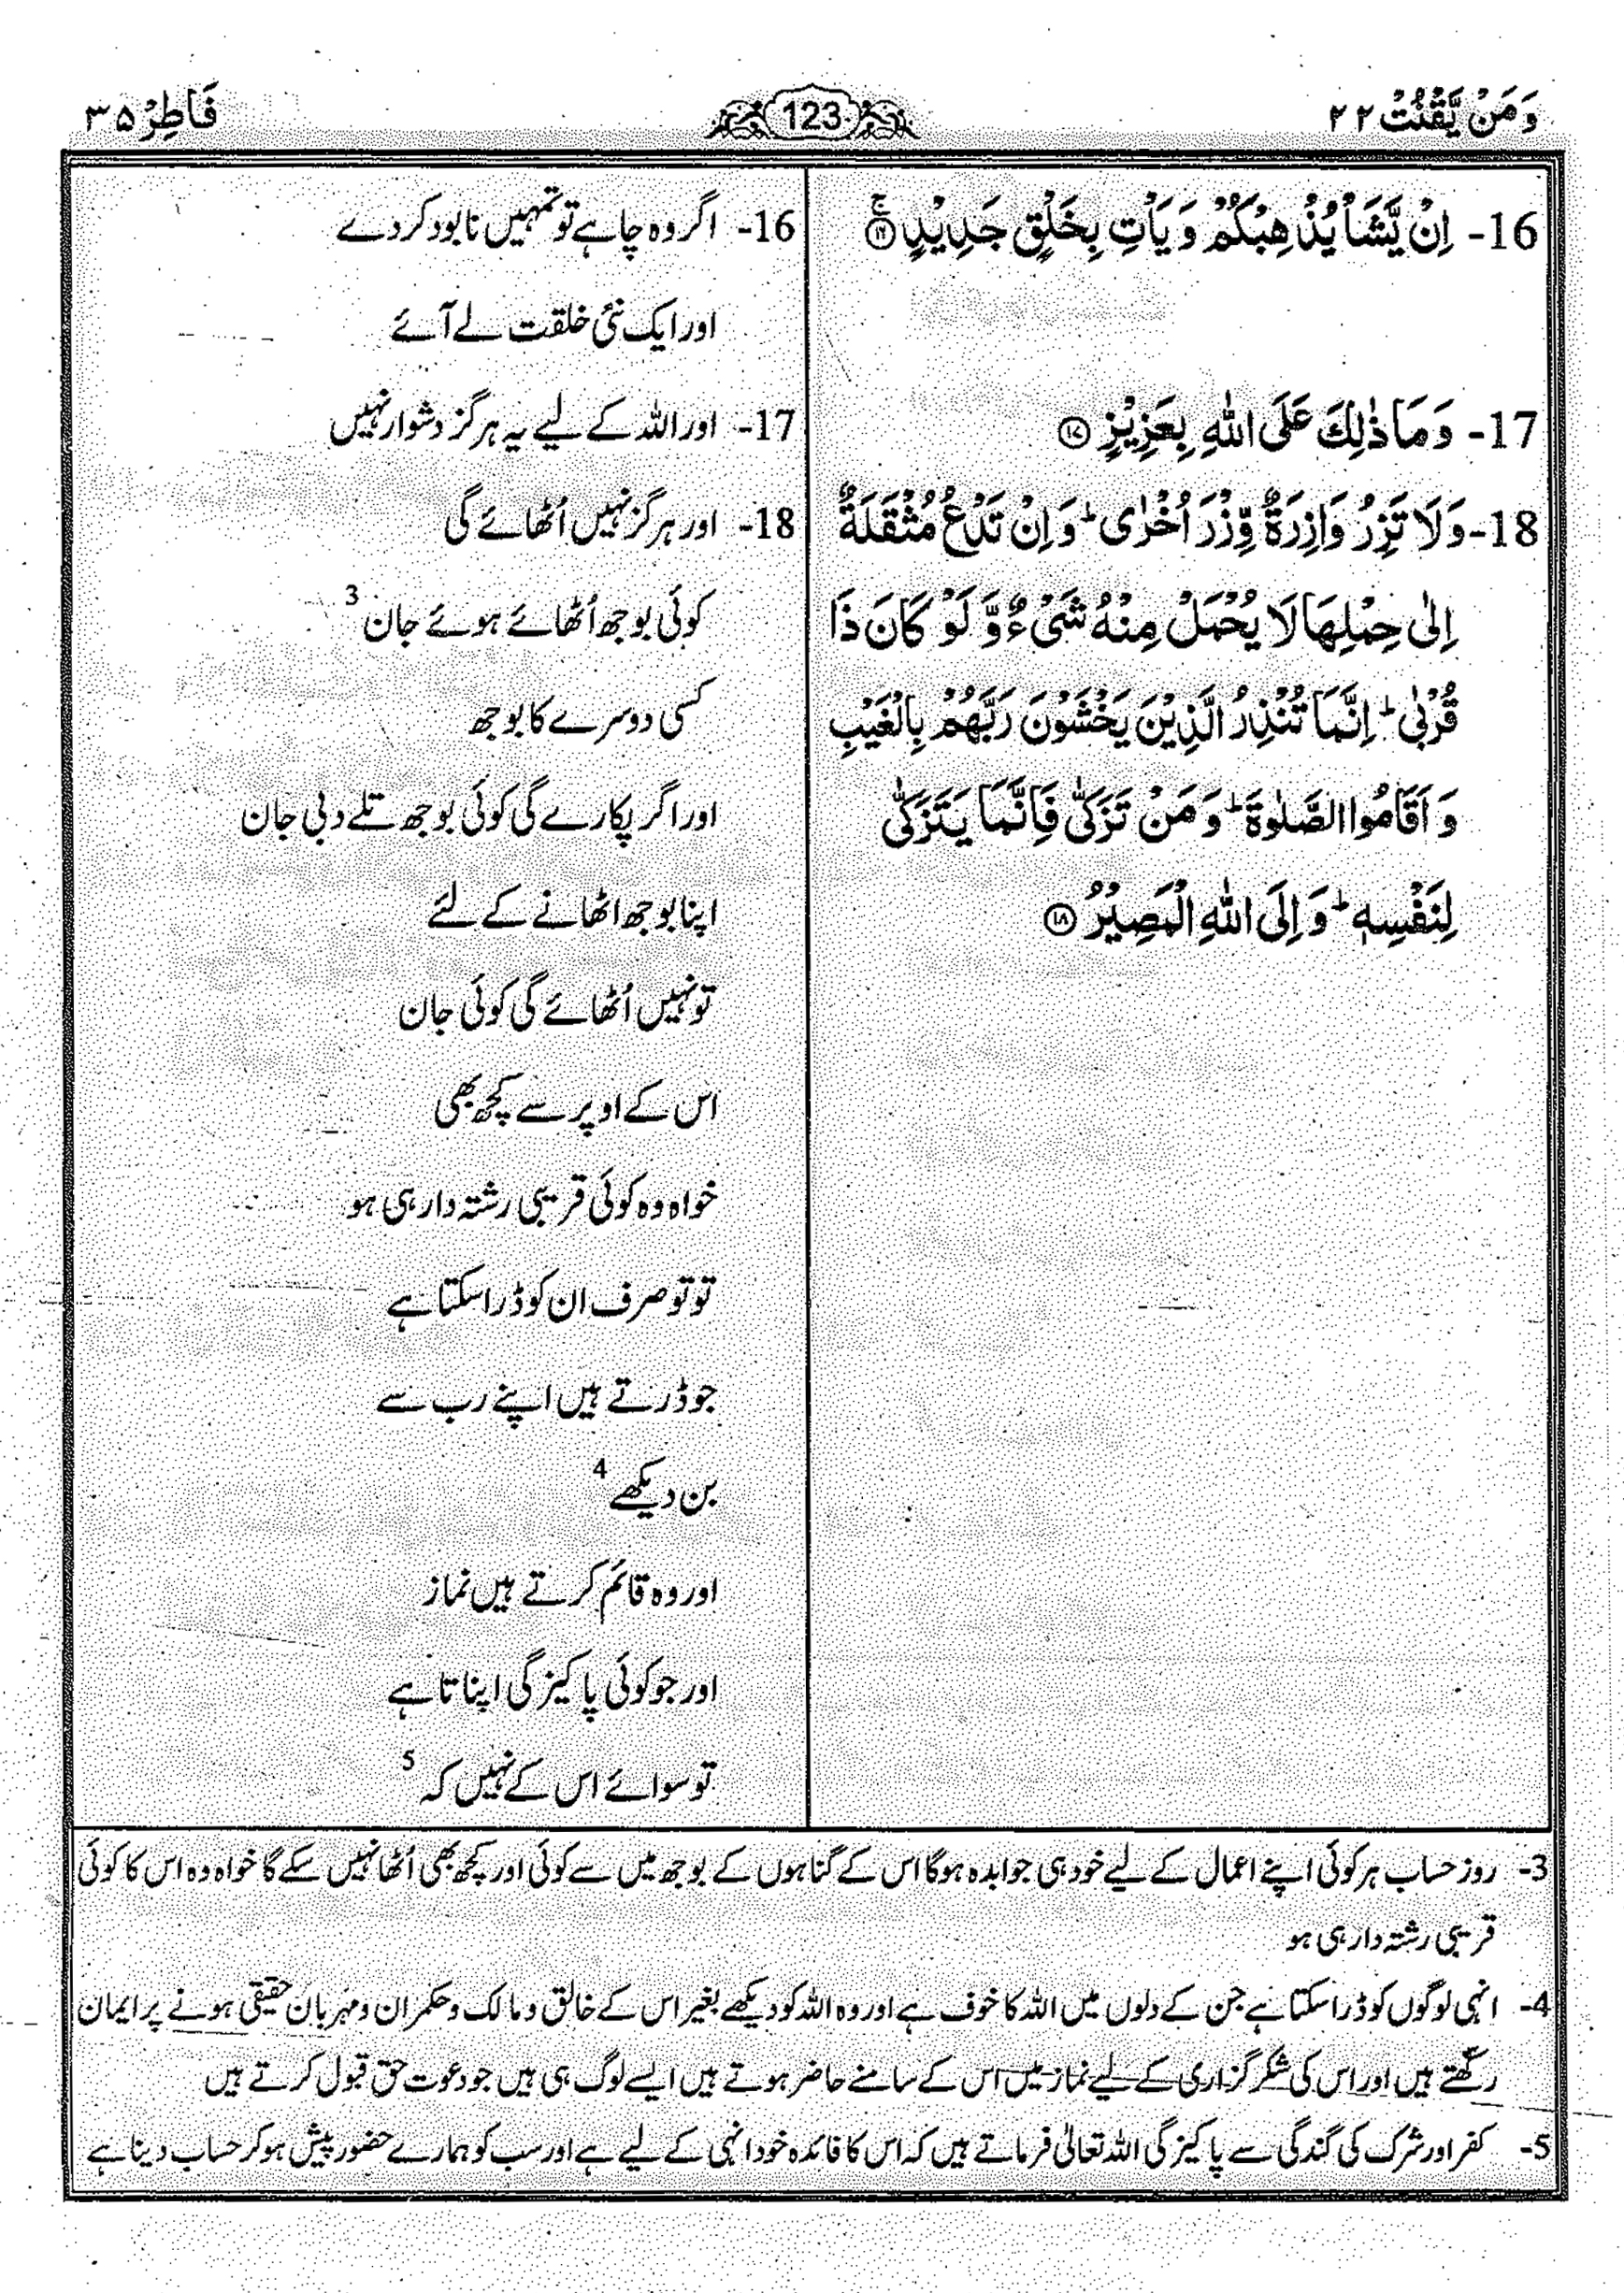 وَمَنْ يَّقْنُتْ ٢٢
123
فَاطِرْ ٣٥
16- اِنْ يَّشَاْ يُذْهِبْكُمْ وَ يَاْتِ بِخَلْقٍ جَدِيْدٍ ۚ ﴿١٦﴾
17- وَ مَا ذٰلِكَ عَلَى اللّٰهِ بِعَزِيْزٍ ﴿١٧﴾
18- وَلَا تَزِرُ وَازِرَةٌ وِّزْرَ اُخْرٰى ؕ وَ اِنْ تَدْعُ مُثْقَلَةٌ
اِلٰى حِمْلِهَا لَا يُحْمَلْ مِنْهُ شَيْءٌ وَّ لَوْ كَانَ ذَا
قُرْبٰى ؕ اِنَّمَا تُنْذِرُ الَّذِيْنَ يَخْشَوْنَ رَبَّهُمْ بِالْغَيْبِ
وَ اَقَامُوا الصَّلٰوةَ ؕ وَ مَنْ تَزَكّٰى فَاِنَّمَا يَتَزَكّٰى
لِنَفْسِهٖ ؕ وَ اِلَى اللّٰهِ الْمَصِيْرُ ﴿١٨﴾
16- اگر وہ چاہے تو تمہیں نابود کر دے
اور ایک نئی خلقت لے آئے
17- اور اللہ کے لیے یہ ہرگز دشوار نہیں
18- اور ہرگز نہیں اُٹھائے گی
کوئی بوجھ اُٹھائے ہوئے جان 3
کسی دوسرے کا بوجھ
اور اگر پکارے گی کوئی بوجھ تلے دبی جان
اپنا بوجھ اٹھانے کے لئے
تو نہیں اُٹھائے گی کوئی جان
اس کے اوپر سے کچھ بھی
خواہ وہ کوئی قریبی رشتہ دار ہی ہو
تو تو صرف ان کو ڈرا سکتا ہے
جو ڈرتے ہیں اپنے رب سے
بن دیکھے 4
اور وہ قائم کرتے ہیں نماز
اور جو کوئی پاکیزگی اپناتا ہے
تو سوائے اس کے نہیں کہ 5
3- روز حساب ہر کوئی اپنے اعمال کے لیے خود ہی جوابدہ ہوگا اس کے گناہوں کے بوجھ میں سے کوئی اور کچھ بھی اُٹھا نہیں سکے گا خواہ وہ اس کا کوئی
قریبی رشتہ دار ہی ہو
4- انہی لوگوں کو ڈرا سکتا ہے جن کے دلوں میں اللہ کا خوف ہے اور وہ اللہ کو دیکھے بغیر اس کے خالق و مالک و حکمران و مہربان حقیقی ہونے پر ایمان
رکھتے ہیں اور اس کی شکر گزاری کے لیے نماز میں اس کے سامنے حاضر ہوتے ہیں ایسے لوگ ہی ہیں جو دعوت حق قبول کرتے ہیں
5- کفر اور شرک کی گندگی سے پاکیزگی اللہ تعالیٰ فرماتے ہیں کہ اس کا فائدہ خود انہی کے لیے ہے اور سب کو ہمارے حضور پیش ہو کر حساب دینا ہے